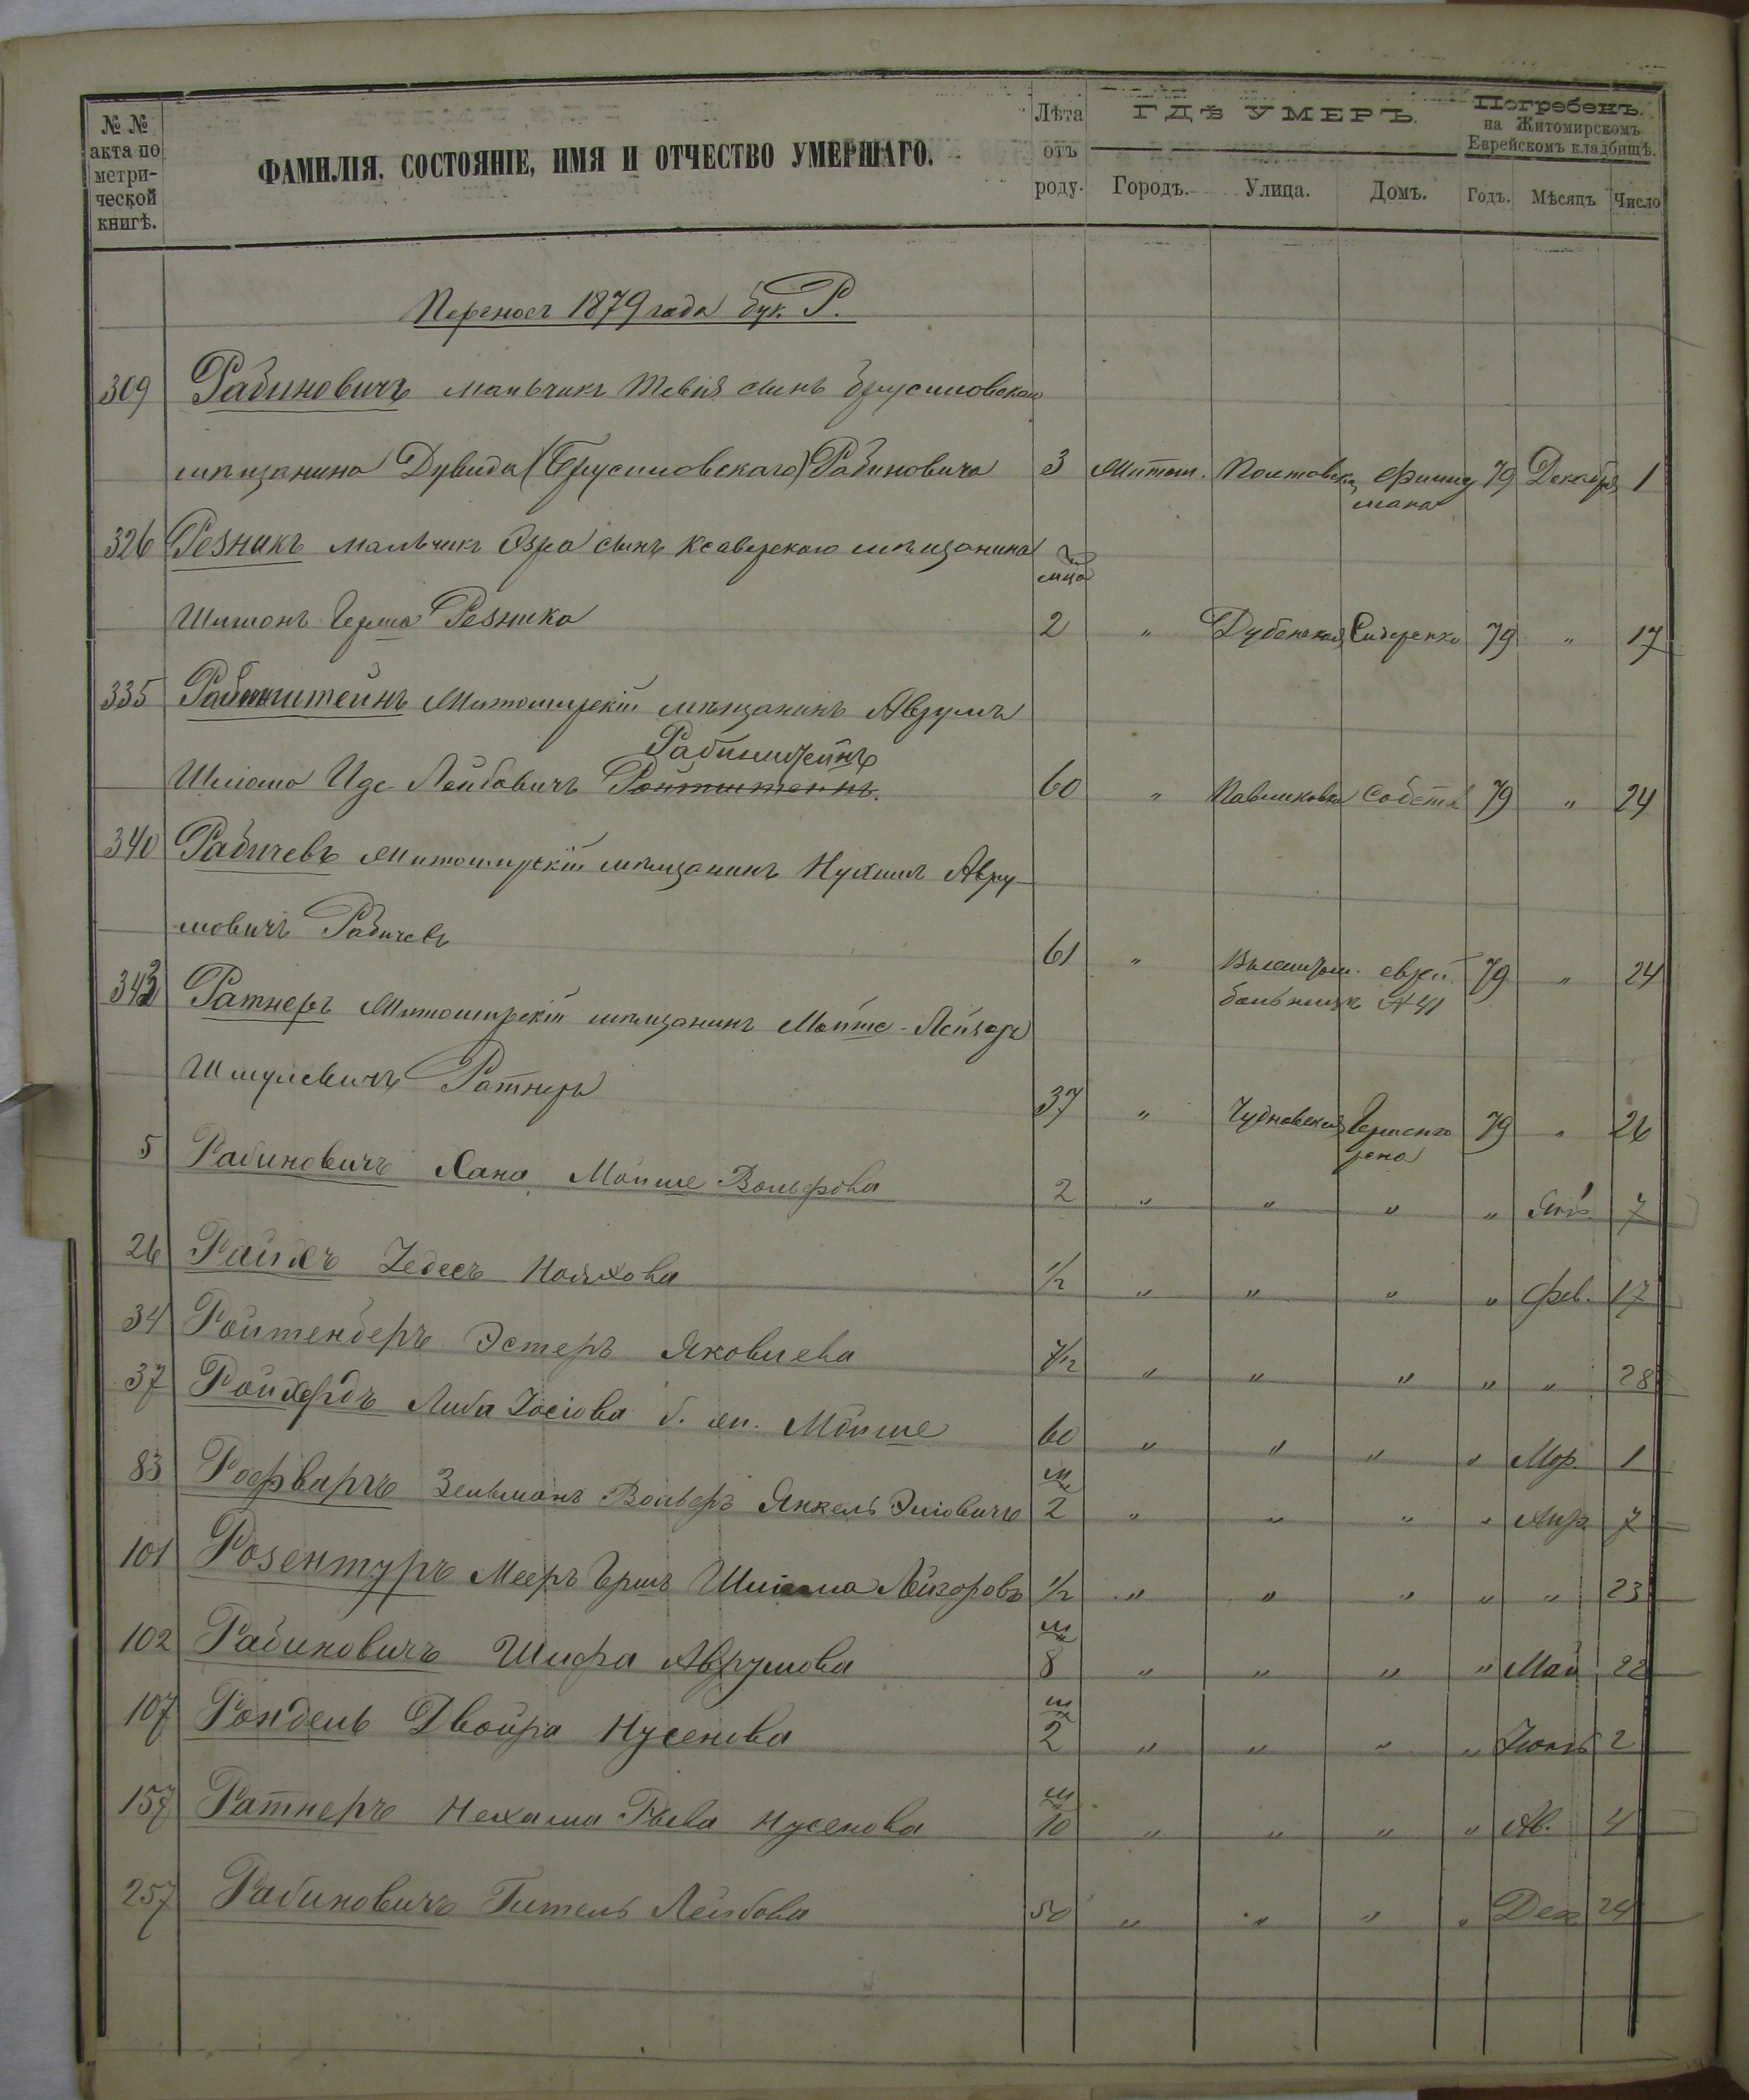 № №
акта по
метри-
ческой
книгѣ.
ФАМИЛІЯ, СОСТОЯНІЕ, ИМЯ И ОТЧЕСТВО УМЕРШАГО.
Лѣта
отъ
роду.
ГДѢ УМЕРЪ.
Городъ. Улица. Домъ.
Погребенъ.
на Житомирскомъ
Еврейскомъ кладбищѣ.
Годъ. Мѣсяцъ Число
Переносъ 1879 года бук. Р.
309 Рабиновичъ мальчикъ Тевія сынъ брусиловскаго
мѣщанина Дувида (Брусиловскаго) Рабиновича 3 Житом. 79 Декабря 1
326 Резникъ мальчикъ Озра сынъ мѣщанина
Шимонъ Герша Резника 2 мца " Дубенская Сидоренко 79 " 17
335 Рабинштейнъ Житомирскій мѣщанинъ Аврумъ
Рабинштейнъ
Шлиома Иде Лейбовичъ Ройтштейнъ. 60 " Павликовка Собств 79 " 24
340 Рабичевъ Житомирскій мѣщанинъ Нухимъ Авру-
мовичъ Рабичевъ 61 " еврей 79 " 24
больница №41
343 Ратнеръ Житомирскій мѣщанинъ Мойше-Лейзеръ
Шмулевичъ Ратнеръ 37 " Чудновская 79 " 26
5 Рабиновичъ Хана Мойше Вольфова 2 " " " " Янв. 7
26 Райхъ 1/2 " " " " фев. 17
34 Ройтенберъ Эстеръ Яковлева 7/12 " " " " " 28
37 Либа Іосіова б. им. Мойше 60 " " " " Мар. 1
83 Рофваргъ Зельманъ Вольфъ Янкель Эліовичъ 2 м " " " " Апр. 7
101 Розентуръ Мееръ Гершъ Лейзоровъ 1/2 " " " " " 23
102 Рабиновичъ Шифра Аврумова 8 м " " " " Май 22
107 Рондель Двойра Нусенова 2 м " " " " 2
157 Ратнеръ Нехама Рыва Нусенова 10 м " " " " Ав. 4
257 Рабиновичъ Гитель Лейбова 50 " " " " Дек 24